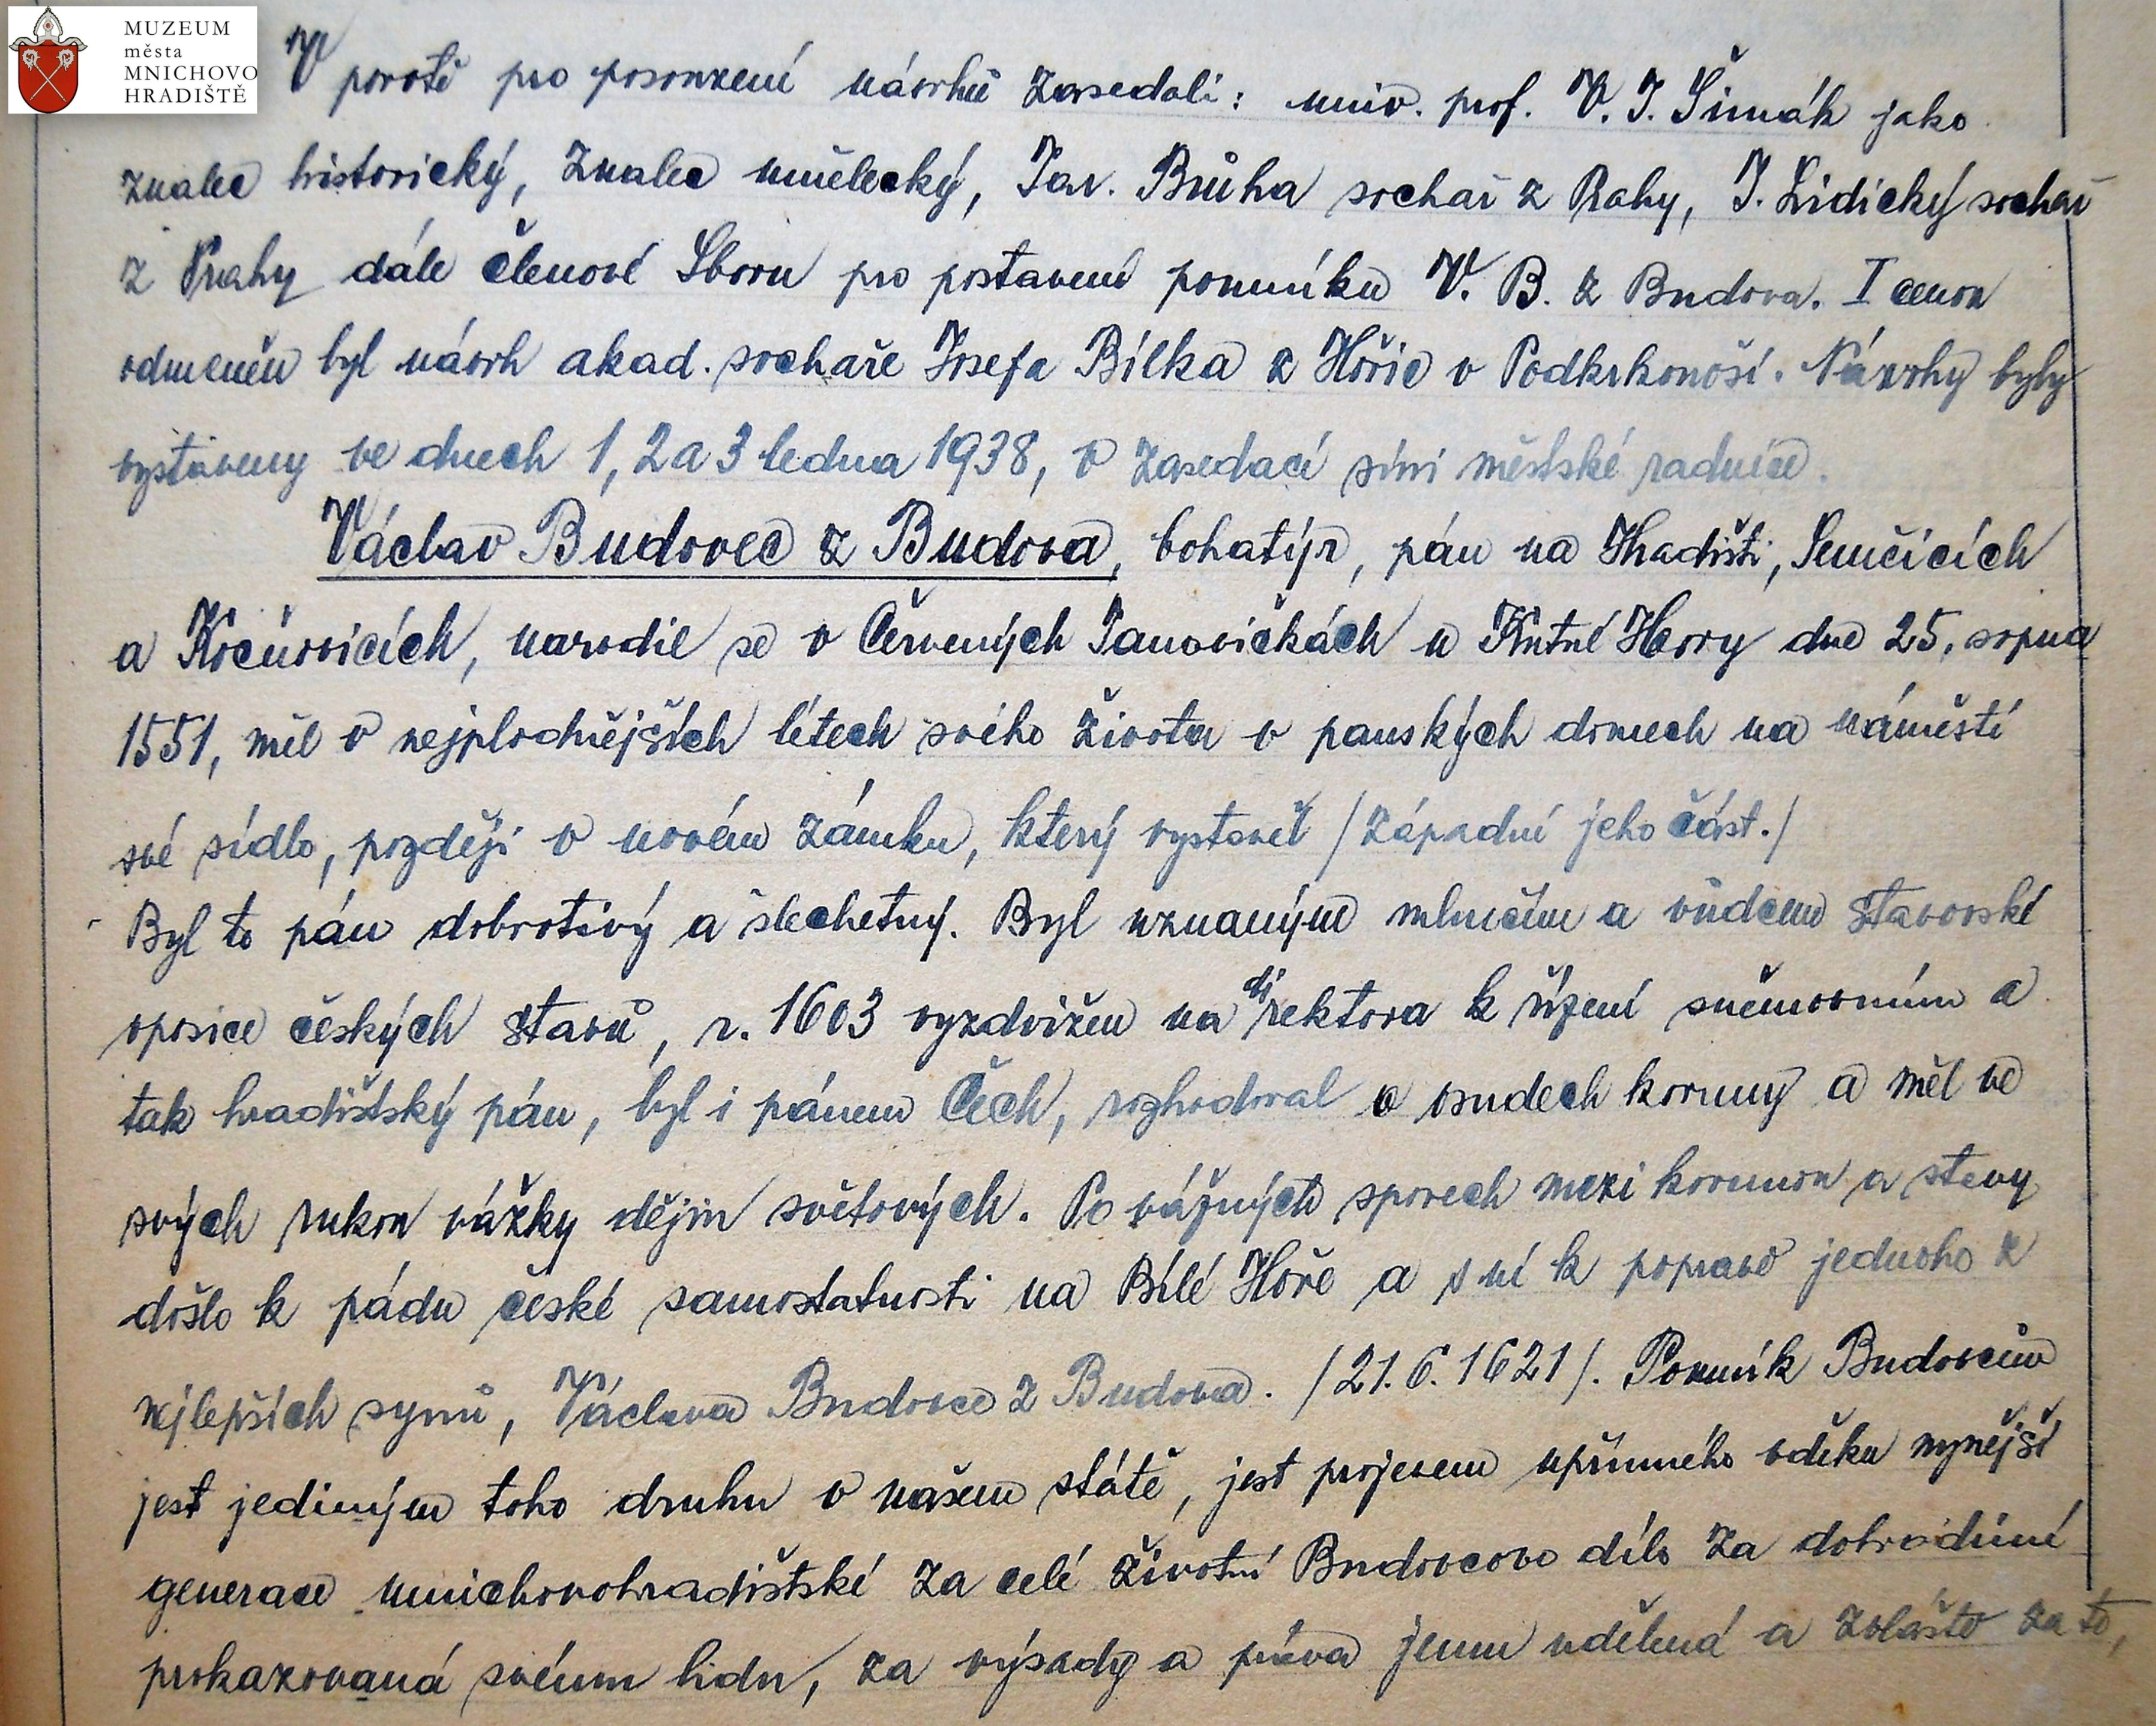 MUZEUM
města
MNICHOVO
HRADIŠTĚ
V porotě pro posouzení návrhů zasedali: univ. prof. V. J. Šimák jako
znalec historický, znalec umělecký, Jar. Brůha sochař z Prahy, J. Lidický sochař
z Prahy dále členové Sboru pro postavení pomníku V. B. z Budova. I cenou
odměněn byl návrh akad. sochaře Josefa Bílka z Hořic v Podkrkonoší. Návrhy byly
vystaveny ve dnech 1, 2 a 3 ledna 1938, v zasedací síni městské radnice.
Václav Budovec z Budova, bohatýr, pán na Hradišti, Semčicích
a Kočňovicích, narodil se v Červených Janovičkách u Kutné Hory dne 25. srpna
1551, měl v nejplodnějších létech svého života v panských domech na náměstí
své sídlo, později v novém zámku, který vystavěl /západní jeho část./
Byl to pán dobrotivý a šlechetný. Byl uznaným mluvčím a vůdcem stavovské
oposice českých stavů, r. 1603 vyzdvižen na direktora k řízení sněmovním a
tak hradištský pán, byl i pánem Čech, rozhodoval o osudech koruny a měl ve
svých rukou vážky dějin světových. Po vážných sporech mezi korunou a stavy
došlo k pádu české samostatnosti na Bílé Hoře a s ní k popravě jednoho z
nejlepších synů, Václava Budovce z Budova. /21. 6. 1621/. Pomník Budovcům
jest jediným toho druhu v našem státě, jest projevem upřímného vděku nynější
generace mnichovohradištské za celé životní Budovcovo dílo za dobrodiní
prokazovaná svému lidu, za výsady a práva jemu udělená a zvláště za to,